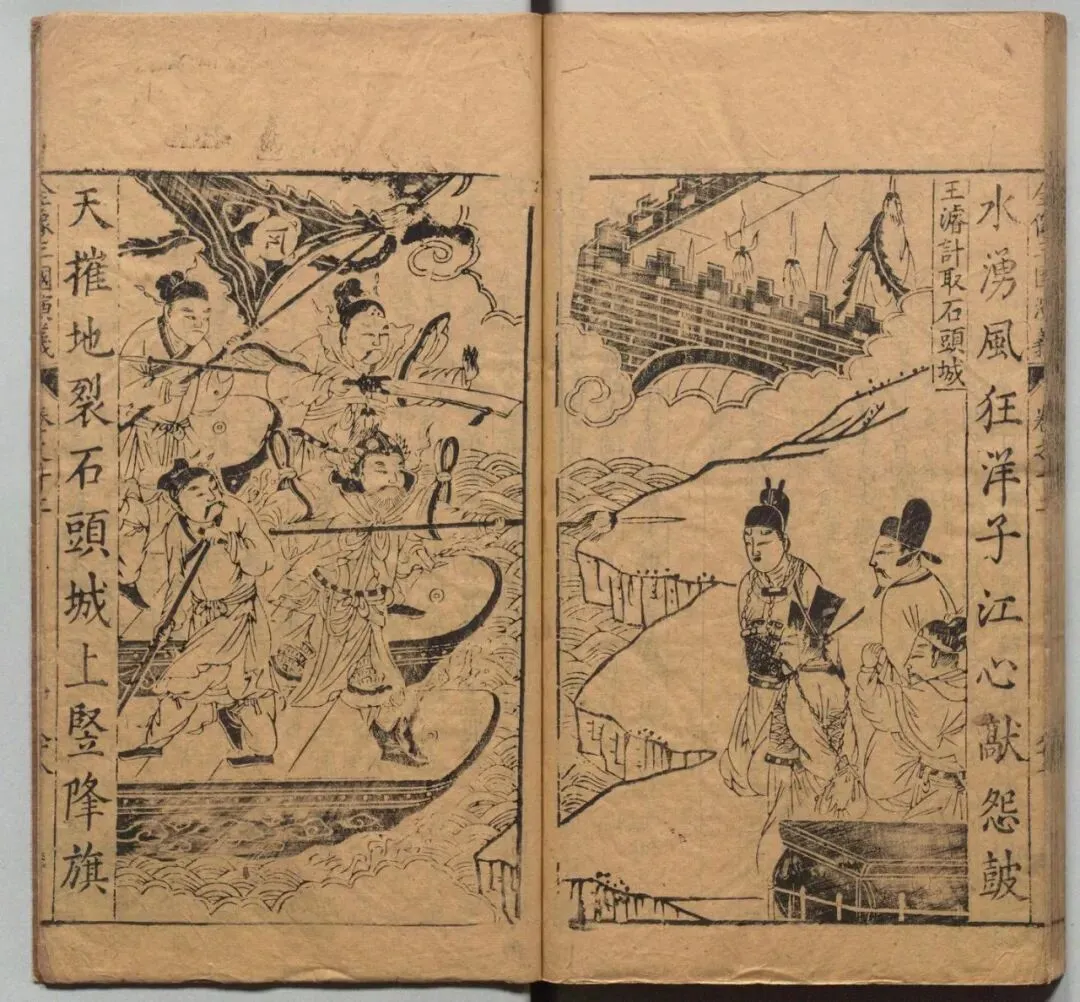 全像三國演義
水湧風狂洋子江心献怨皷
王濬計取石頭城
天摧地裂石頭城上竪降旗
全像三國演義 卷之十二